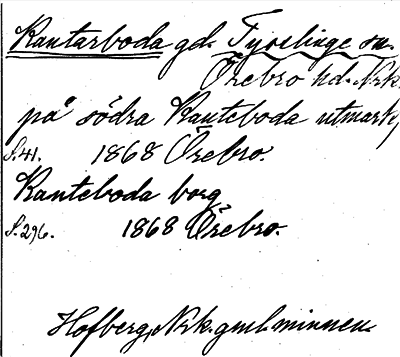 Kantarboda gd. Tysslinge sn.
Örebro hd. Nrk.
på södra Kanteboda utmark,
S. 41. 1868 Örebro.
Kanteboda borg
S. 296. 1868 Örebro.
Hofberg, Nrk. gml. minnen